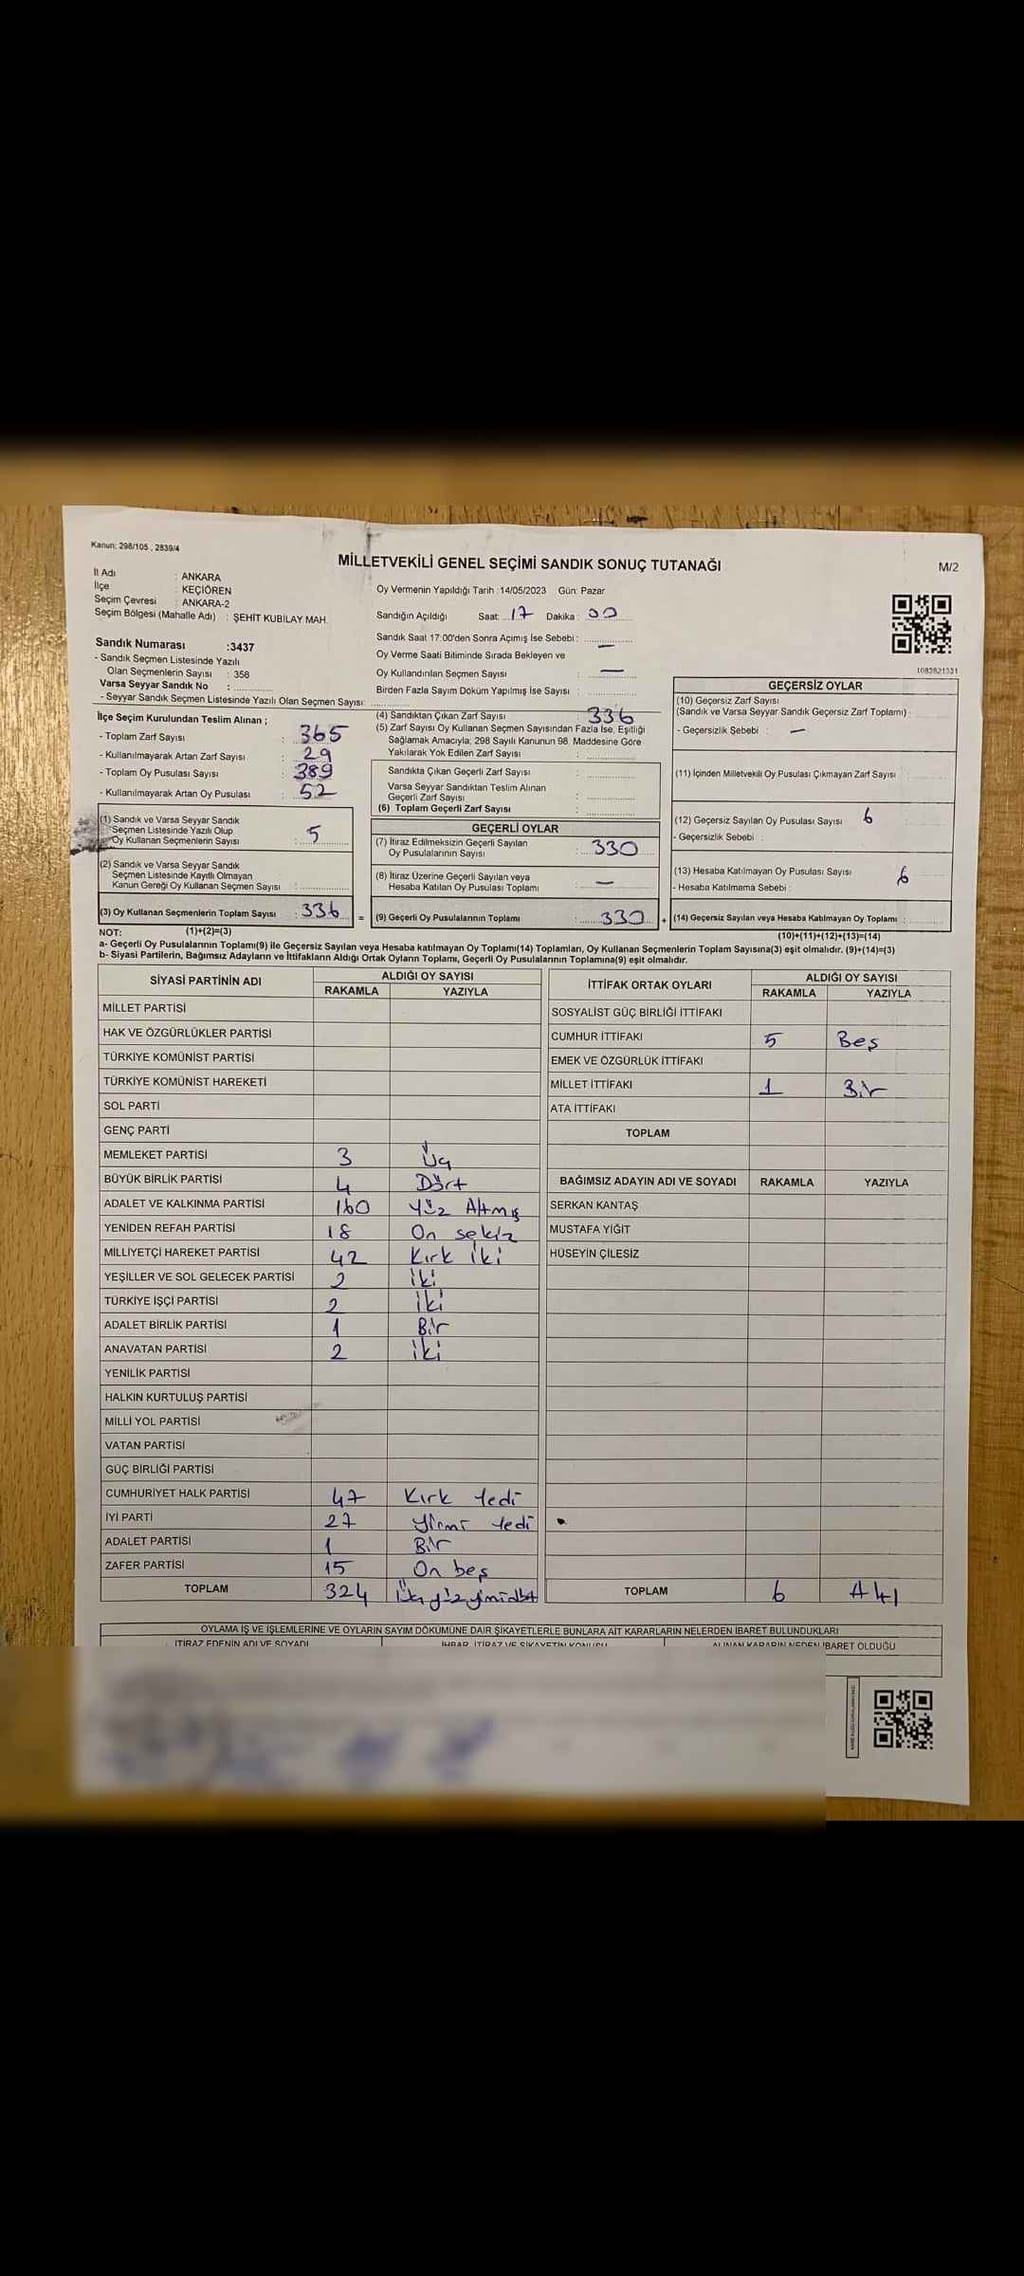 Kanun: 298/105 , 2839/4
MİLLETVEKİLİ GENEL SEÇİMİ SANDIK SONUÇ TUTANAĞI
M/2
İl Adı : ANKARA
İlçe : KEÇİÖREN
Seçim Çevresi : ANKARA-2
Seçim Bölgesi (Mahalle Adı) : ŞEHİT KUBİLAY MAH.
Oy Vermenin Yapıldığı Tarih : 14/05/2023 Gün: Pazar
Sandığın Açıldığı Saat: 17 Dakika : 00
Sandık Saat 17:00'den Sonra Açımış İse Sebebi : —
Oy Verme Saati Bitiminde Sırada Bekleyen ve
Oy Kullandırılan Seçmen Sayısı : —
Birden Fazla Sayım Döküm Yapılmış İse Sayısı :
Sandık Numarası :3437
- Sandık Seçmen Listesinde Yazılı
Olan Seçmenlerin Sayısı : 358
Varsa Seyyar Sandık No :
- Seyyar Sandık Seçmen Listesinde Yazılı Olan Seçmen Sayısı:
1083821031
İlçe Seçim Kurulundan Teslim Alınan ;
- Toplam Zarf Sayısı : 365
- Kullanılmayarak Artan Zarf Sayısı : 29
- Toplam Oy Pusulası Sayısı : 389
- Kullanılmayarak Artan Oy Pusulası : 52
(4) Sandıktan Çıkan Zarf Sayısı : 336
(5) Zarf Sayısı Oy Kullanan Seçmen Sayısından Fazla İse, Eşitliği
Sağlamak Amacıyla; 298 Sayılı Kanunun 98. Maddesine Göre
Yakılarak Yok Edilen Zarf Sayısı :
Sandıkta Çıkan Geçerli Zarf Sayısı :
Varsa Seyyar Sandıktan Teslim Alınan
Geçerli Zarf Sayısı :
(6) Toplam Geçerli Zarf Sayısı :
(1) Sandık ve Varsa Seyyar Sandık
Seçmen Listesinde Yazılı Olup
Oy Kullanan Seçmenlerin Sayısı : 5
(2) Sandık ve Varsa Seyyar Sandık
Seçmen Listesinde Kayıtlı Olmayan
Kanun Gereği Oy Kullanan Seçmen Sayısı :
(3) Oy Kullanan Seçmenlerin Toplam Sayısı : 336 =
(1)+(2)=(3)
GEÇERLİ OYLAR
(7) İtiraz Edilmeksizin Geçerli Sayılan
Oy Pusulalarının Sayısı : 330
(8) İtiraz Üzerine Geçerli Sayılan veya
Hesaba Katılan Oy Pusulası Toplamı : —
(9) Geçerli Oy Pusulalarının Toplamı : 330 +
GEÇERSİZ OYLAR
(10) Geçersiz Zarf Sayısı
(Sandık ve Varsa Seyyar Sandık Geçersiz Zarf Toplamı) :
- Geçersizlik Sebebi : —
(11) İçinden Milletvekili Oy Pusulası Çıkmayan Zarf Sayısı
(12) Geçersiz Sayılan Oy Pusulası Sayısı 6
- Geçersizlik Sebebi :
(13) Hesaba Katılmayan Oy Pusulası Sayısı 6
- Hesaba Katılmama Sebebi :
(14) Geçersiz Sayılan veya Hesaba Katılmayan Oy Toplamı :
(10)+(11)+(12)+(13)=(14)
NOT:
a- Geçerli Oy Pusulalarının Toplamı(9) ile Geçersiz Sayılan veya Hesaba katılmayan Oy Toplamı(14) Toplamları, Oy Kullanan Seçmenlerin Toplam Sayısına(3) eşit olmalıdır. (9)+(14)=(3)
b- Siyasi Partilerin, Bağımsız Adayların ve İttifakların Aldığı Ortak Oyların Toplamı, Geçerli Oy Pusulalarının Toplamına(9) eşit olmalıdır.
SİYASİ PARTİNİN ADI
ALDIĞI OY SAYISI
RAKAMLA YAZIYLA
MİLLET PARTİSİ
HAK VE ÖZGÜRLÜKLER PARTİSİ
TÜRKİYE KOMÜNİST PARTİSİ
TÜRKİYE KOMÜNİST HAREKETİ
SOL PARTİ
GENÇ PARTİ
MEMLEKET PARTİSİ 3 Üç
BÜYÜK BİRLİK PARTİSİ 4 Dört
ADALET VE KALKINMA PARTİSİ 160 Yüz Altmış
YENİDEN REFAH PARTİSİ 18 On sekiz
MİLLİYETÇİ HAREKET PARTİSİ 42 Kırk iki
YEŞİLLER VE SOL GELECEK PARTİSİ 2 iki
TÜRKİYE İŞÇİ PARTİSİ 2 iki
ADALET BİRLİK PARTİSİ 1 Bir
ANAVATAN PARTİSİ 2 iki
YENİLİK PARTİSİ
HALKIN KURTULUŞ PARTİSİ
MİLLİ YOL PARTİSİ
VATAN PARTİSİ
GÜÇ BİRLİĞİ PARTİSİ
CUMHURİYET HALK PARTİSİ 47 Kırk Yedi
İYİ PARTİ 27 Yirmi Yedi
ADALET PARTİSİ 1 Bir
ZAFER PARTİSİ 15 On beş
TOPLAM 324
İTTİFAK ORTAK OYLARI
ALDIĞI OY SAYISI
RAKAMLA YAZIYLA
SOSYALİST GÜÇ BİRLİĞİ İTTİFAKI
CUMHUR İTTİFAKI 5 Beş
EMEK VE ÖZGÜRLÜK İTTİFAKI
MİLLET İTTİFAKI 1 Bir
ATA İTTİFAKI
TOPLAM
BAĞIMSIZ ADAYIN ADI VE SOYADI RAKAMLA YAZIYLA
SERKAN KANTAŞ
MUSTAFA YİĞİT
HÜSEYİN ÇİLESİZ
TOPLAM 6 Altı
OYLAMA İŞ VE İŞLEMLERİNE VE OYLARIN SAYIM DÖKÜMÜNE DAİR ŞİKAYETLERLE BUNLARA AİT KARARLARIN NELERDEN İBARET BULUNDUKLARI
İTİRAZ EDENİN ADI VE SOYADI İHBAR, İTİRAZ VE ŞİKAYETİN KONUSU ALINAN KARARIN NEDEN İBARET OLDUĞU